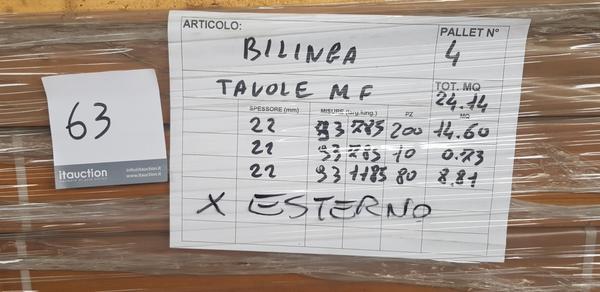 ARTICOLO:
BILINGA
PALLET N°
4
TAVOLE M F
TOT. MQ
24.14
SPESSORE (mm) MISURE PZ MQ
22 93 785 200 14.60
22 93 785 10 0.73
22 93 1185 80 8.81
X ESTERNO
63
info@itauction.it
itauction www.itauction.it